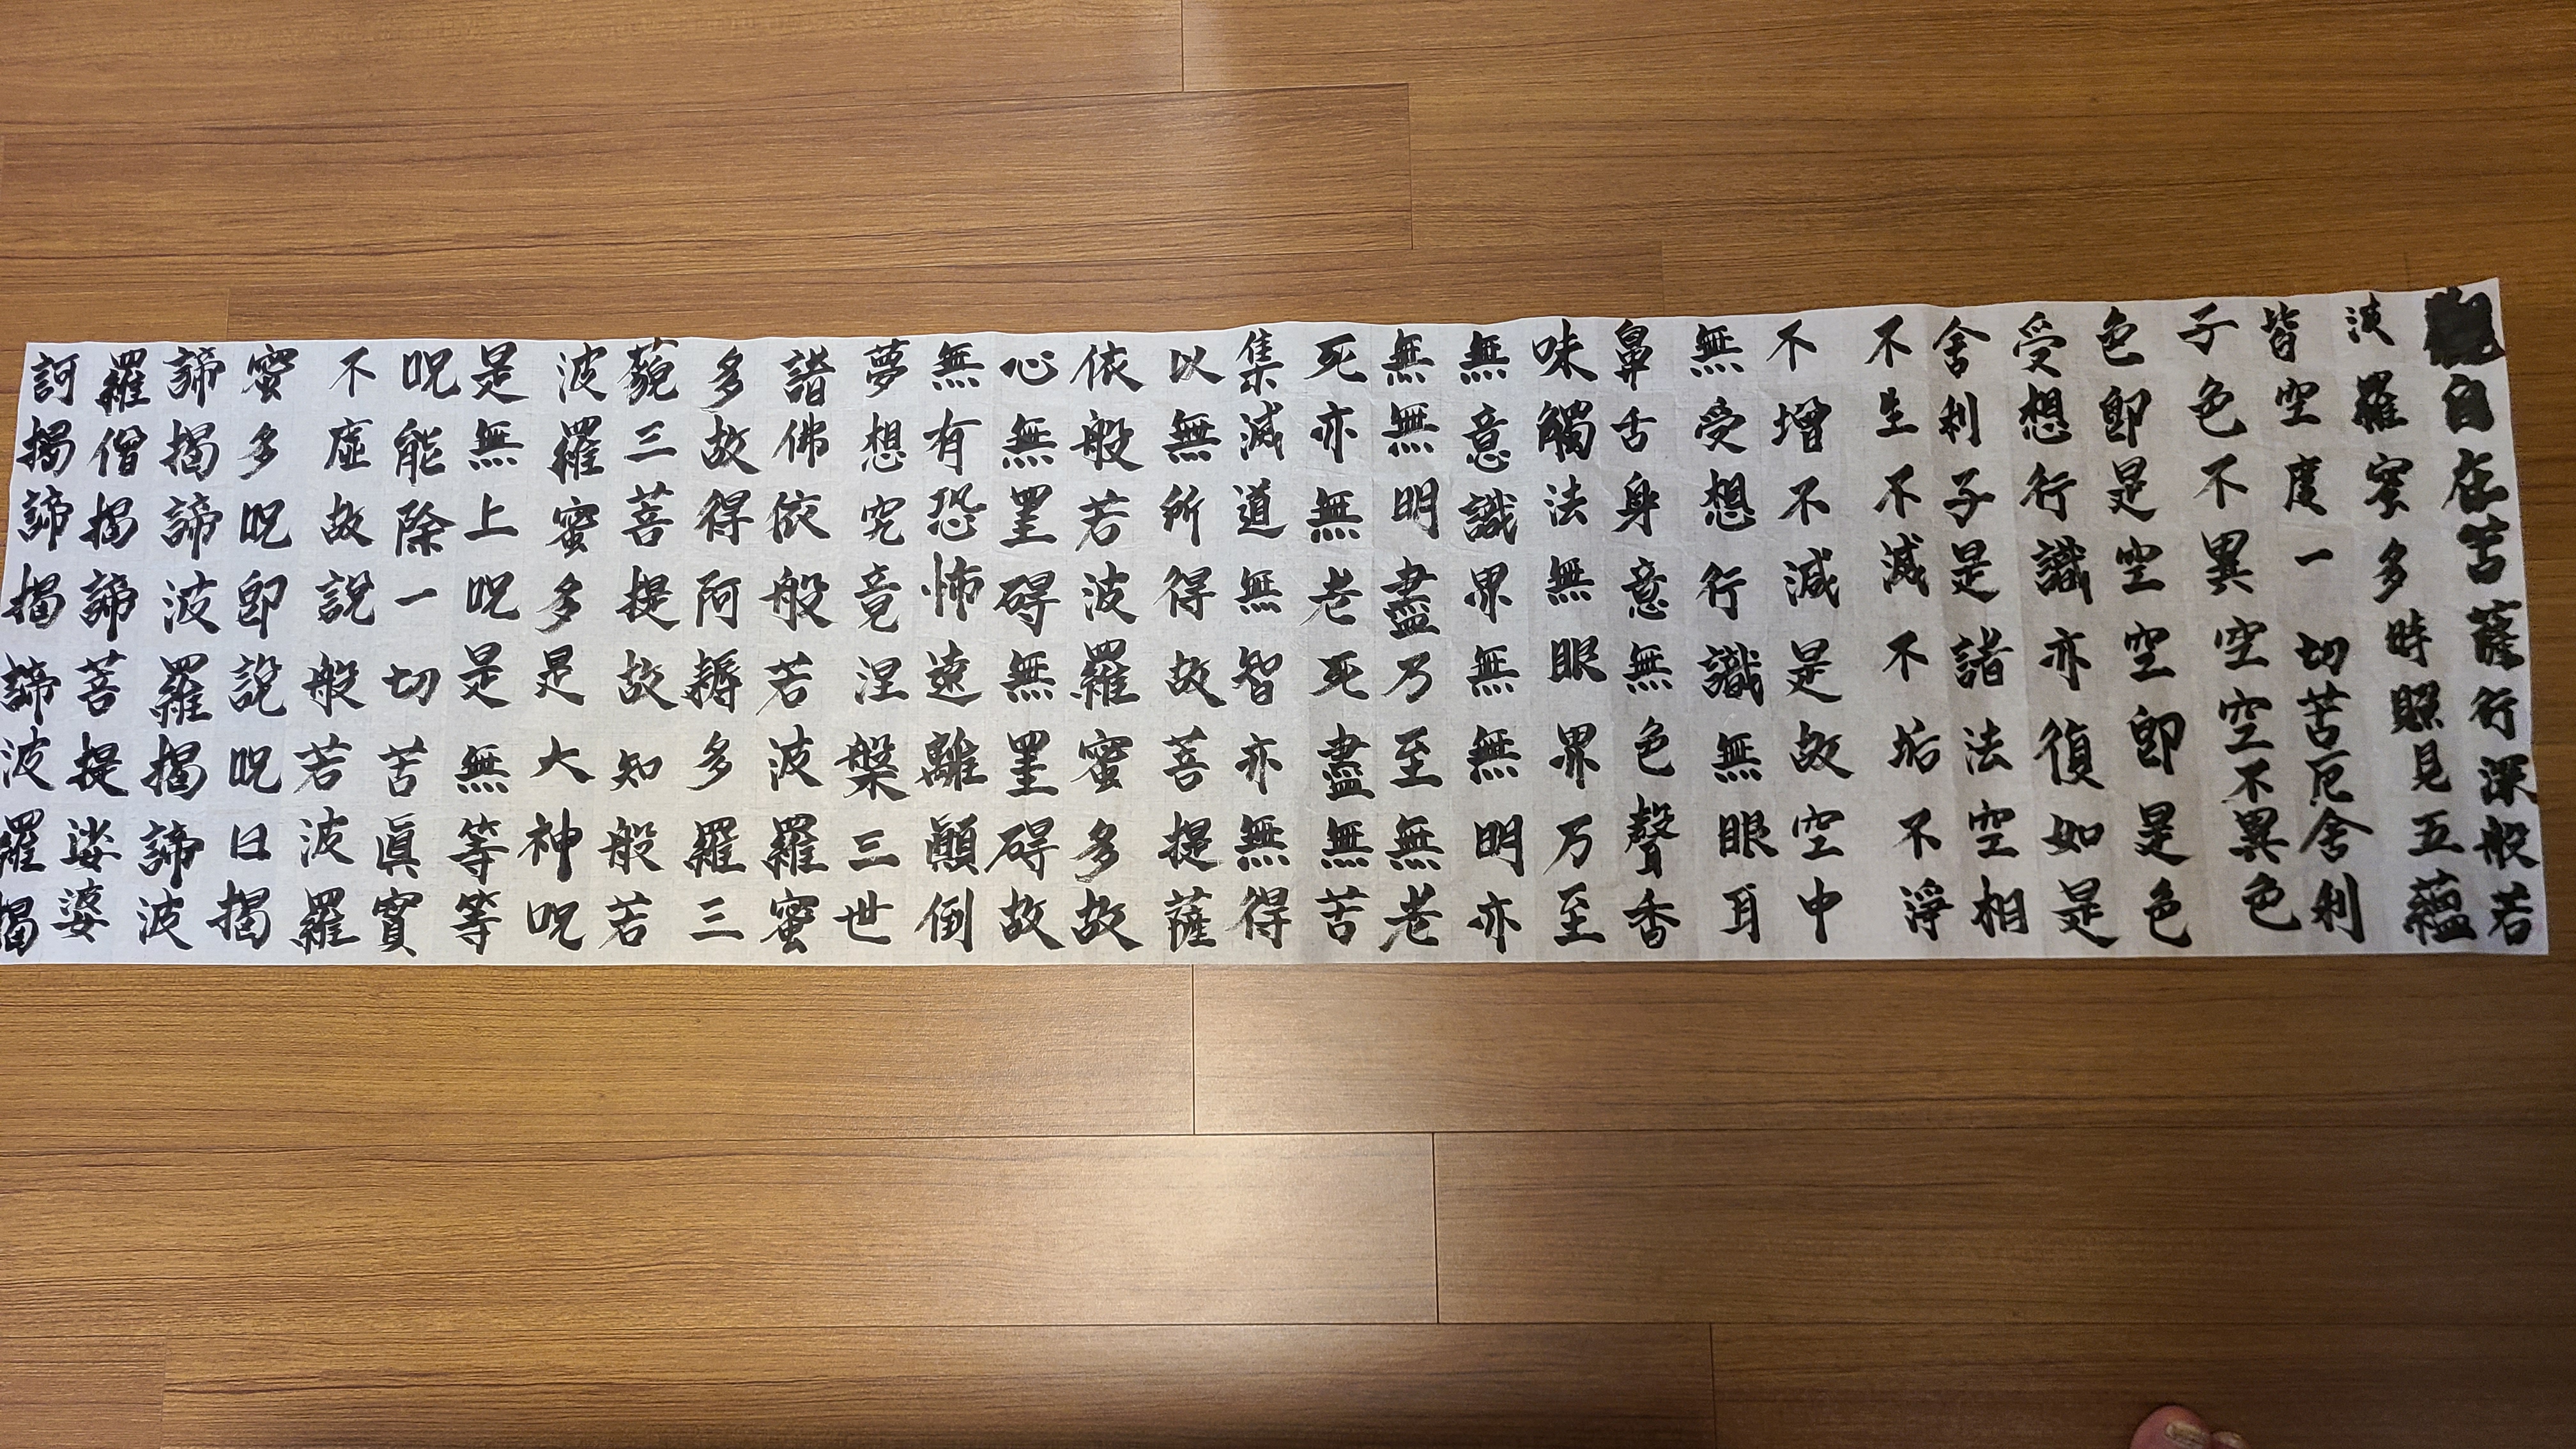 自在菩薩行深般若
波羅蜜多時照見五蘊
皆空度一切苦厄舍利
子色不異空空不異色
色即是空空即是色
受想行識亦復如是
舍利子是諸法空相
不生不滅不垢不淨
不增不減是故空中
無受想行識無眼耳
鼻舌身意無色聲香
味觸法無眼界乃至
無意識界無無明亦
無無明盡乃至無老
死亦無老死盡無苦
集滅道無智亦無得
以無所得故菩提薩
依般若波羅蜜多故
心無罣碍無罣碍故
無有恐怖遠離顛倒
夢想究竟涅槃三世
諸佛依般若波羅蜜
多故得阿耨多羅三
藐三菩提故知般若
波羅蜜多是大神呪
是無上呪是無等等
呪能除一切苦眞實
不虛故說般若波羅
蜜多呪即說呪曰揭
諦揭諦波羅揭諦波
羅僧揭諦菩提娑婆
訶揭諦揭諦波羅揭